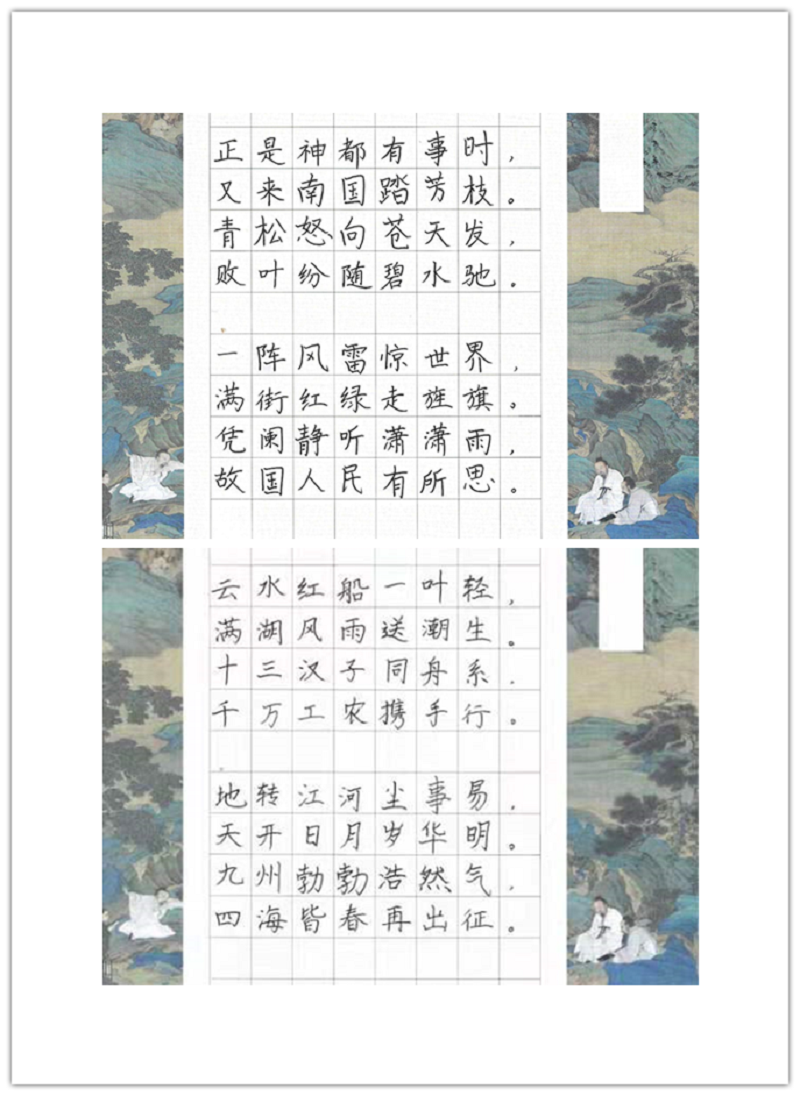 正是神都有事时，
又来南国踏芳枝。
青松怒向苍天发，
败叶纷随碧水驰。
一阵风雷惊世界，
满街红绿走旌旗。
凭阑静听潇潇雨，
故国人民有所思。
云水红船一叶轻，
满湖风雨送潮生。
十三汉子同舟系．
千万工农携手行。
地转江河尘事易，
天开日月岁华明。
九州勃勃浩然气，
四海皆春再出征。